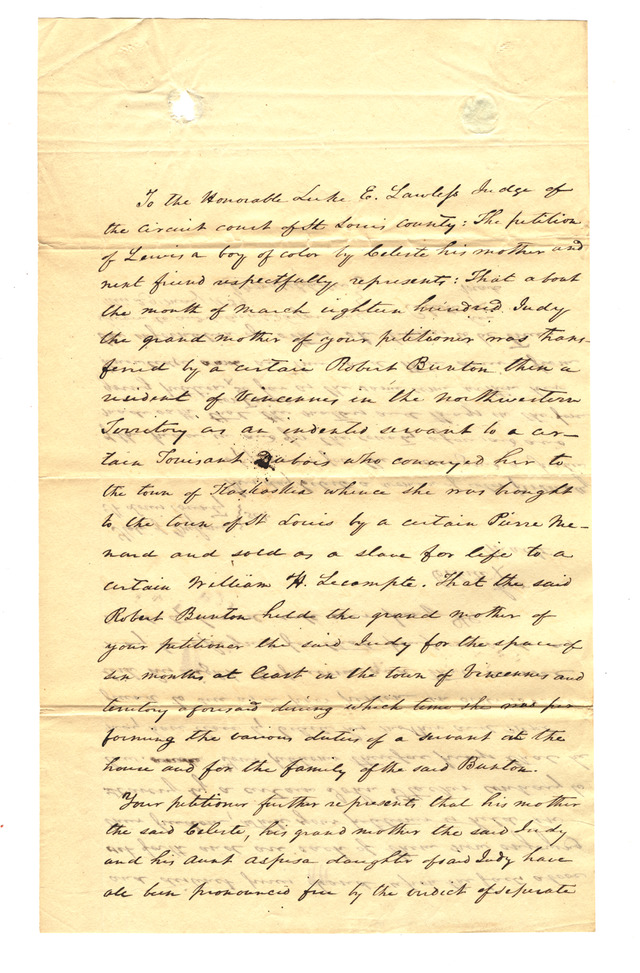 To the Honorable Luke E. Lawless Judge of
the circuit court of St Louis County: The petition
of Lewis a boy of color by Celeste his mother and
next friend respectfully represents: That about
the month of March eighteen hundred Judy
the grand mother of your petitioner was trans-
ferred by a certain Robert Bunton then a
resident of Vincennes in the northwestern
Territory as an indented servant to a cer-
tain Touisant Dubois who conveyed her to
the town of Kaskaskia whence she was brought
to the town of St Louis by a certain Pierre Me-
nard and sold as a slave for life to a
certain William H. Lecompte. That the said
Robert Bunton held the grand mother of
your petitioner the said Judy for the space of
six months at least in the town of Vincennes and
territory aforesaid during which time she was per
forming the various duties of a servant at the
house and for the family of the said Bunton.
Your petitioner further represents that his mother
the said Celeste, his grand mother the said Judy
and his aunt Aspisa daughter of said Judy have
all been pronounced free by the verdict of seperate